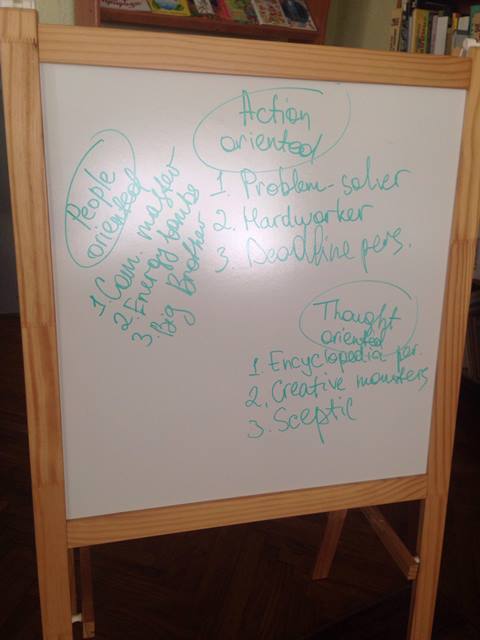 People
oriented
1. Com. master
2. Energy bombs
3. Big Brother
Action
oriented
1. Problem-solver
2. Hardworker
3. Deadline pers.
Thought
oriented
1. Encyclopedia per.
2. Creative monsters
3. Sceptic